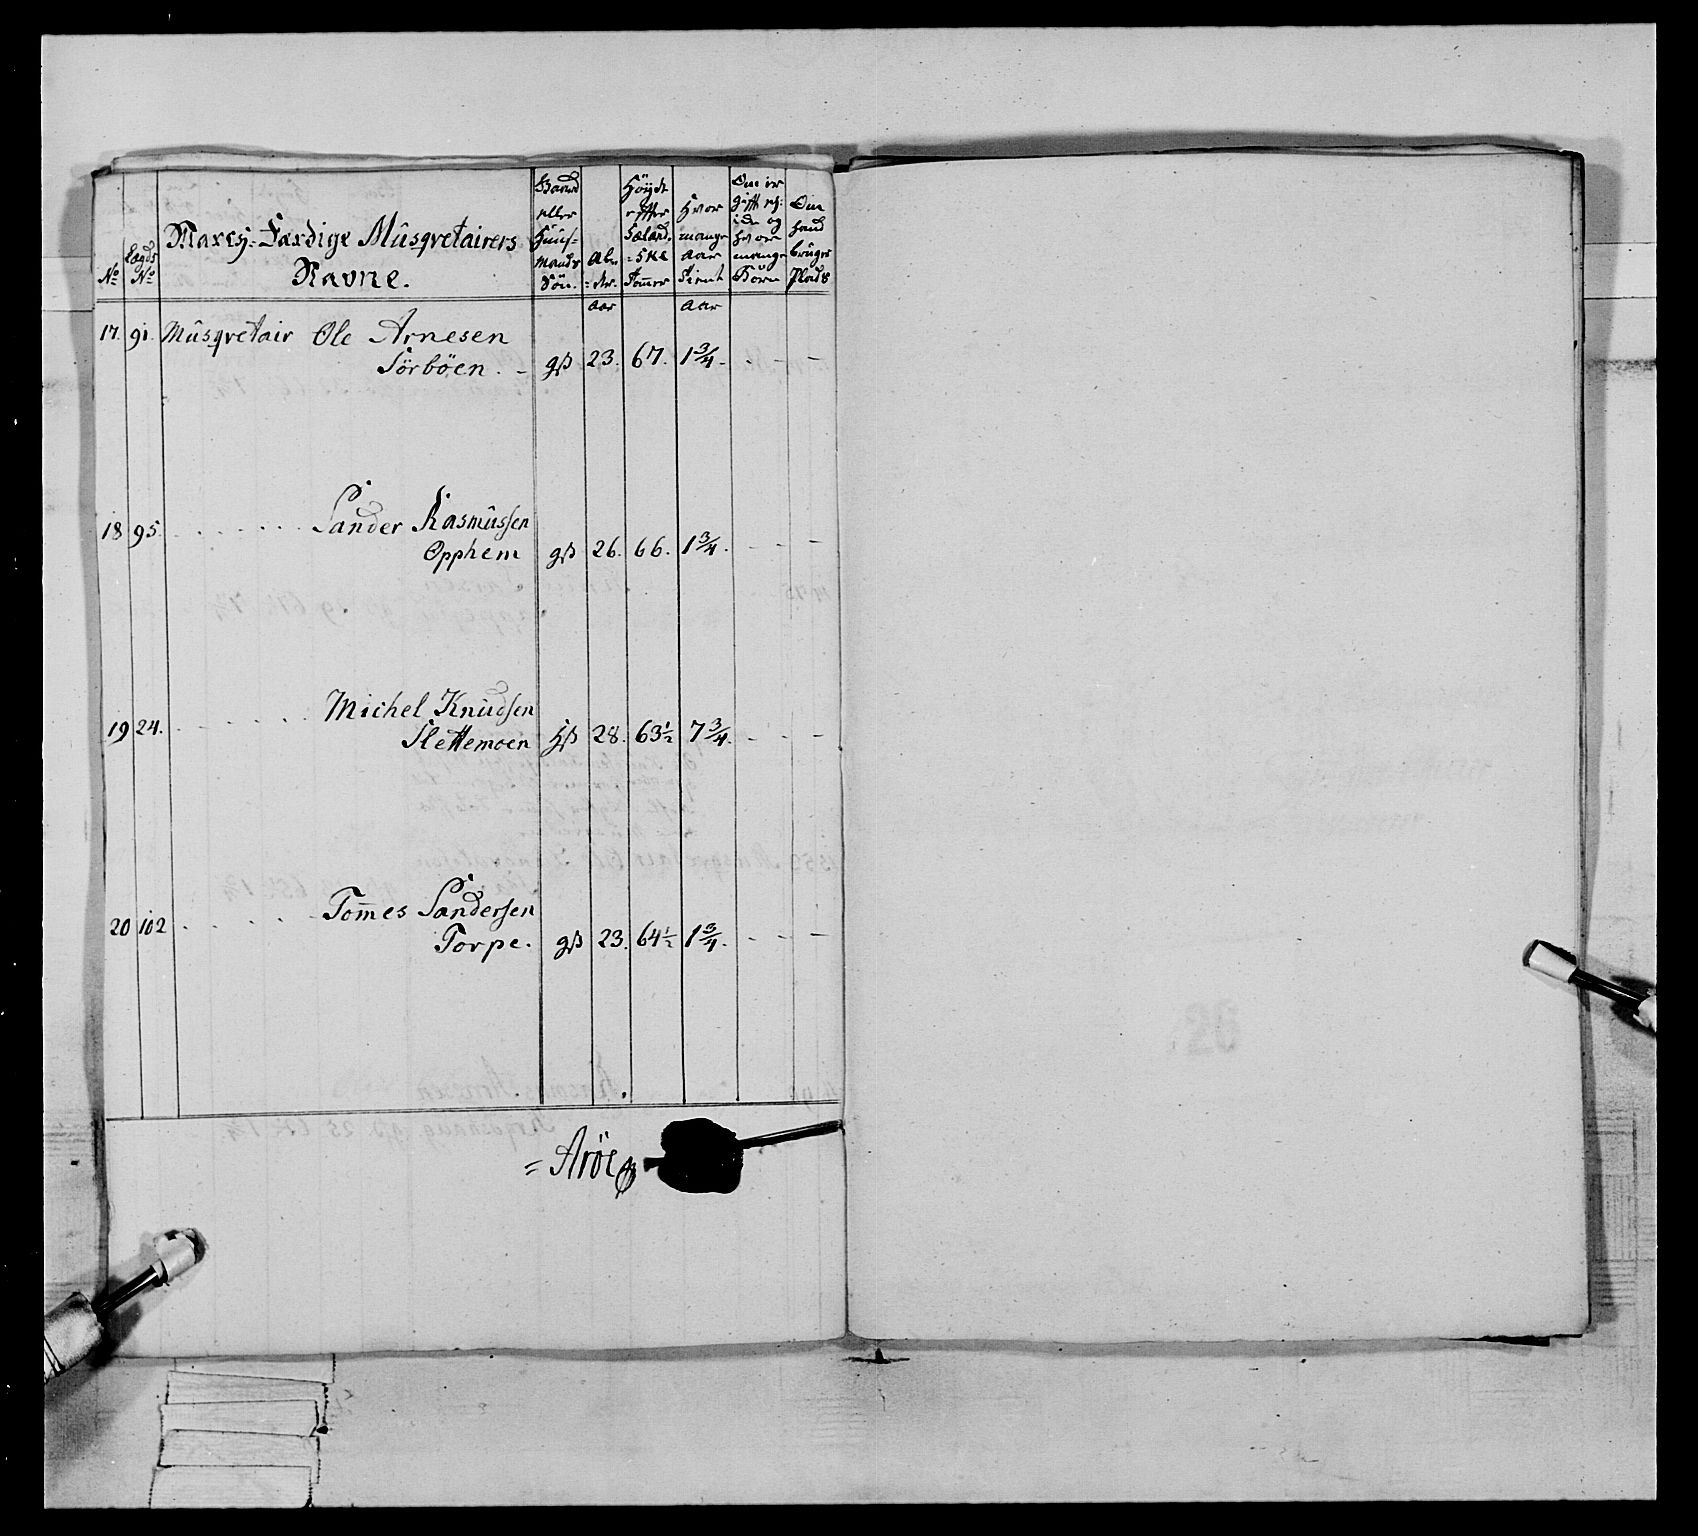 No
Lægds No
Marcsj-Færdige Mûsqvetairers
Navne.
Gaard eller Huus-Mands Sön.
Al- der.
Höyde effter Sælands- ske Tom̄er
Hvor mange aar tient
Om er gifft og hvor mange Børn
Om hand bruger Plads
Aar
Aar
17. 91. Mûsqvetair Ole Arnesen
Sörböen. - gß 23. 67. 1 3/4. - - -
18 95. . . . . . . Sander Rasmûssen
Opphem gß 26. 66. 1 3/4. - - -
19 24. . . . . . . Michel Knûdsen
Slettemoen Hß 28. 63 1/2 7 3/4. - - -
20 102 . . . . - Tom̄es Sandersen
Torpe. gß 23. 64 1/2 1 3/4. - - -
= Aröe